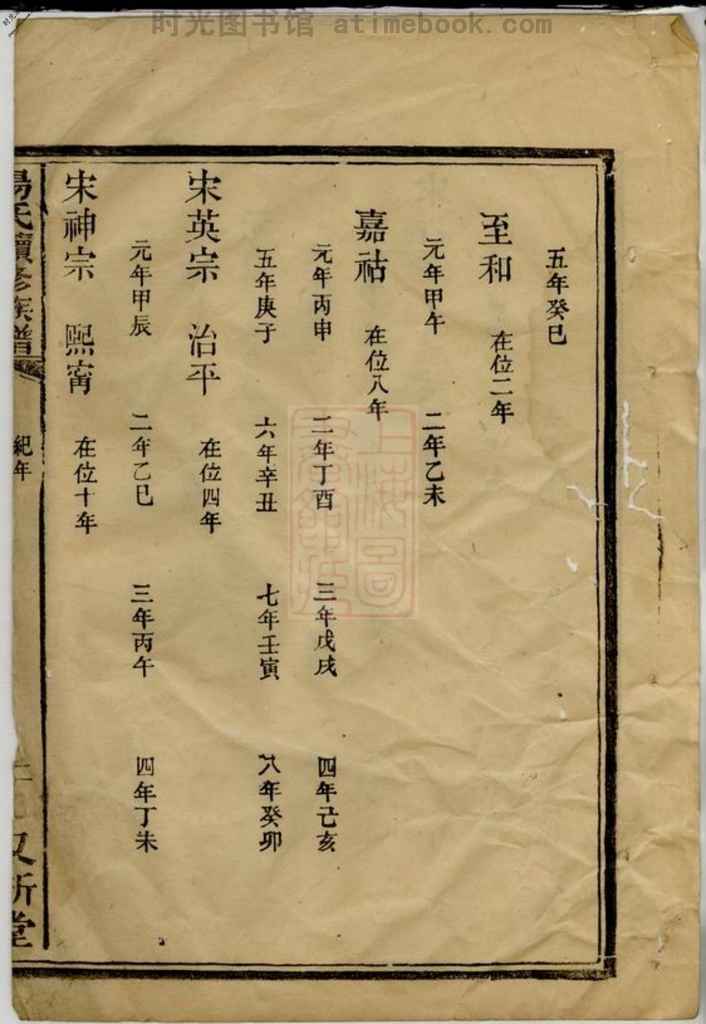 时光图书馆 - atimebook.com
五年癸巳
至和 在位二年
元年甲午 二年乙未
嘉祜 在位八年
元年丙申 二年丁酉 三年戊戌 四年己亥
五年庚子 六年辛丑 七年壬寅 八年癸卯
宋英宗 治平 在位四年
元年甲辰 二年乙巳 三年丙午 四年丁未
宋神宗 熙甯 在位十年
氏續修族譜 紀年 又新堂
上海圖